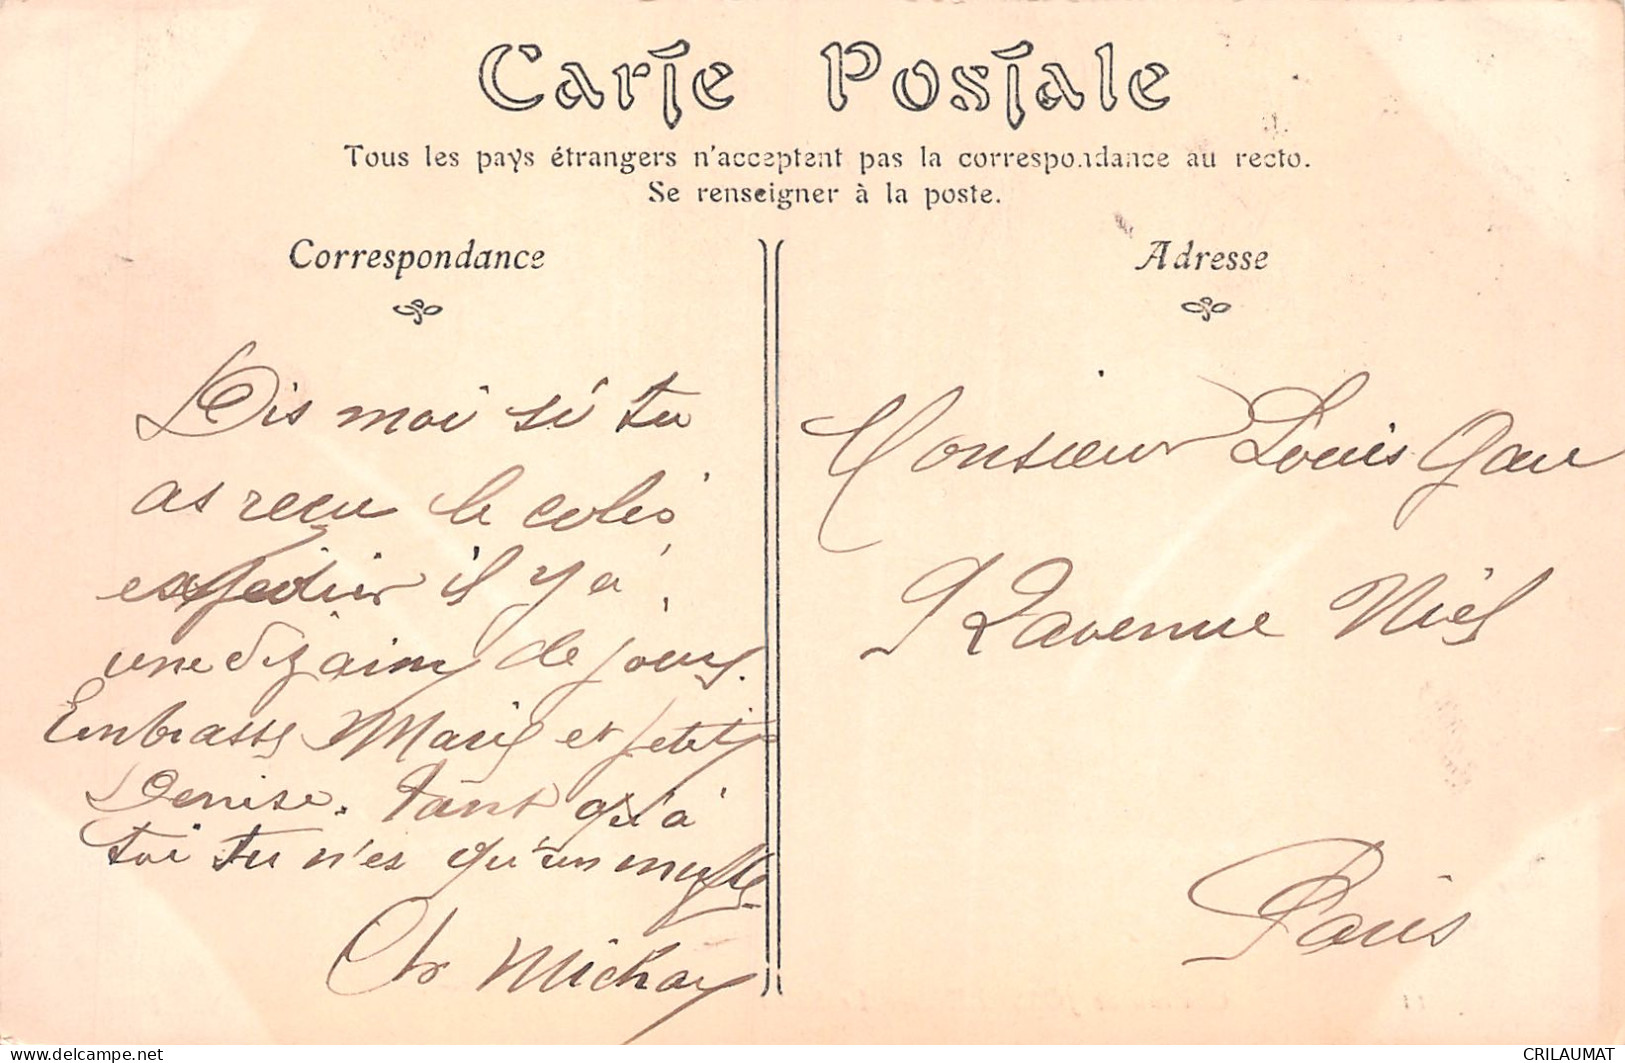 Carte Postale
Tous les pays étrangers n'acceptent pas la correspondance au recto.
Se renseigner à la poste.
Correspondance
Dis moi si tu
as reçu le colis
expédier il y a
une dizaine de jours.
Embrasse Marie et petite
Denise. Tant qu'à
toi tu n'es qu'un mufle
Ch Michay
Adresse
Monsieur Louis
avenue Niel
Paris
delcampe.net
CRILAUMAT